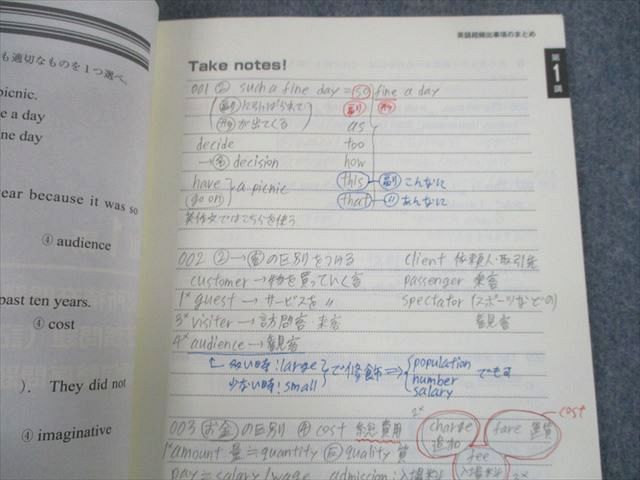 も適切なものを1つ選べ。
picnic.
e a day
ine day
ear because it was so
④ audience
past ten years.
④ cost
). They did not
④ imaginative
英語超頻出事項のまとめ
第1講
Take notes!
001 ② such a fine day = so fine a day
副に引っぱられて 副 形
形が出てくる as
decide too
→ 名 decision how
have a picnic this 副 こんなに
(go on) that 〃 あんなに
英作文ではこちらを使う
002 ② → 客の区別をつける client 依頼人・取引先
customer → 物を買っていく客 passenger 乗客
1× guest → サービスを 〃 spectator (スポーツなどの)
3× visiter → 訪問客 来客 観客
4× audience → 観客
多い時: large で修飾 ⇒ population
少ない時: small number でも可
salary
003 お金の区別 ④ cost 総費用 2× charge 追加 fare 運賃 cost
1× amount 量 ≒ quantity quality 質 fee 入場料
pay = salary / wage admission: 入場料